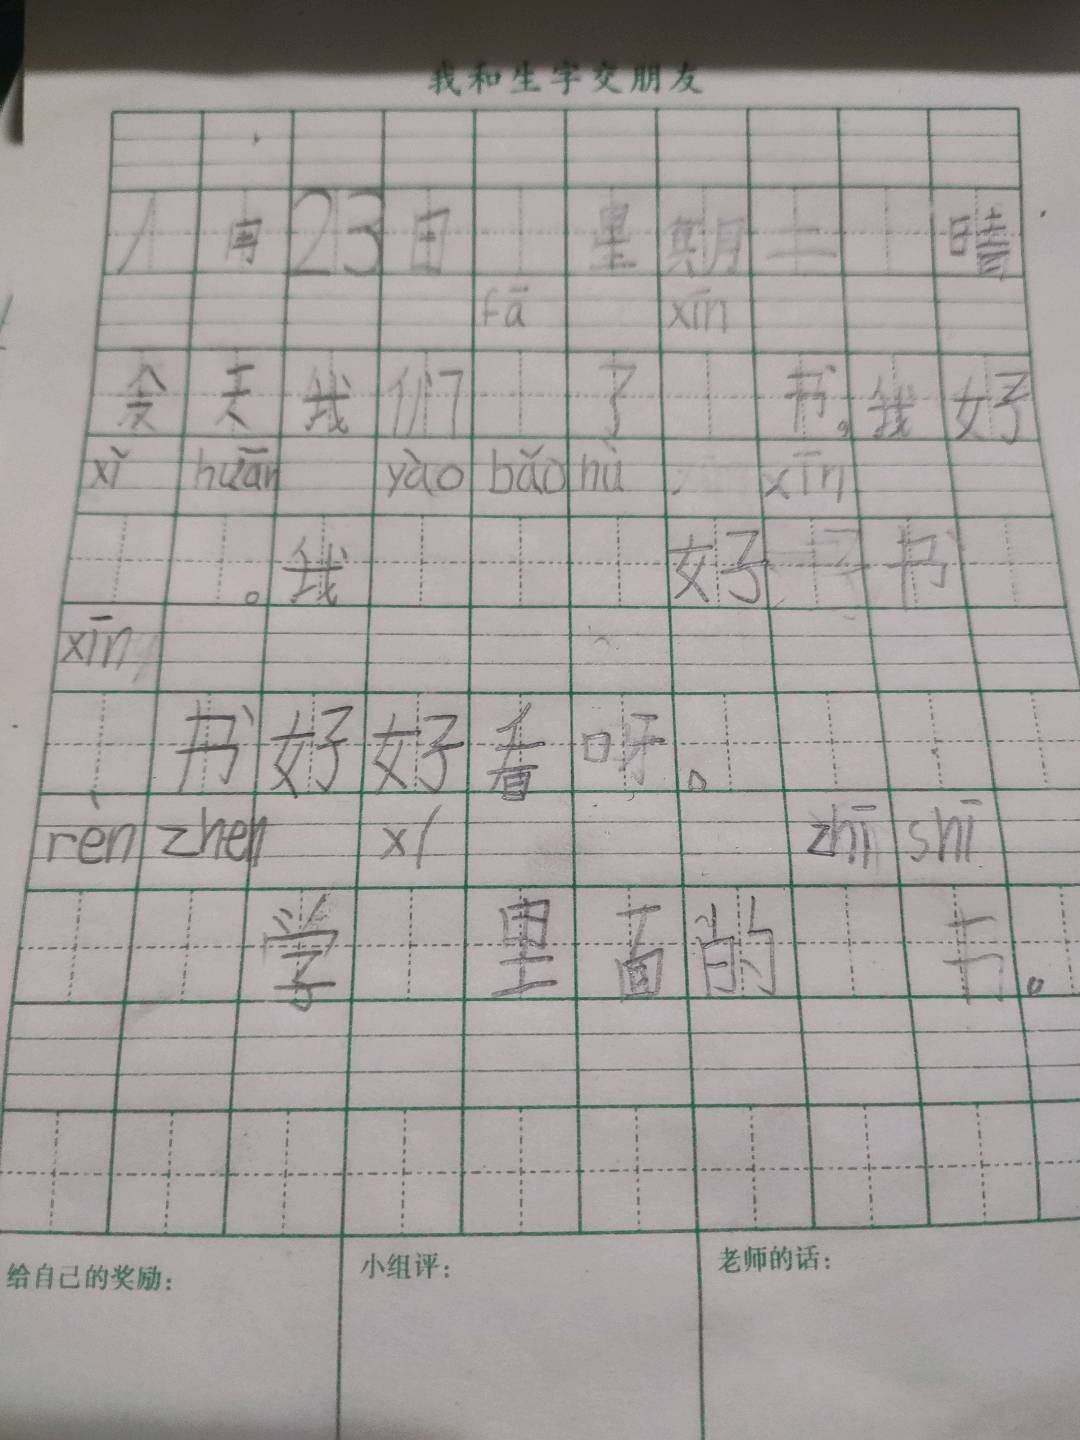 我和生字交朋友
1月23日 星期二 晴
fā xīn
今天我们 了 书。我好
xǐ huān yào bǎo hù xīn
。我 好 书
xīn
书好好看呀。
rèn zhen xí zhī shī
学 里面的 书。
给自己的奖励： 小组评： 老师的话：